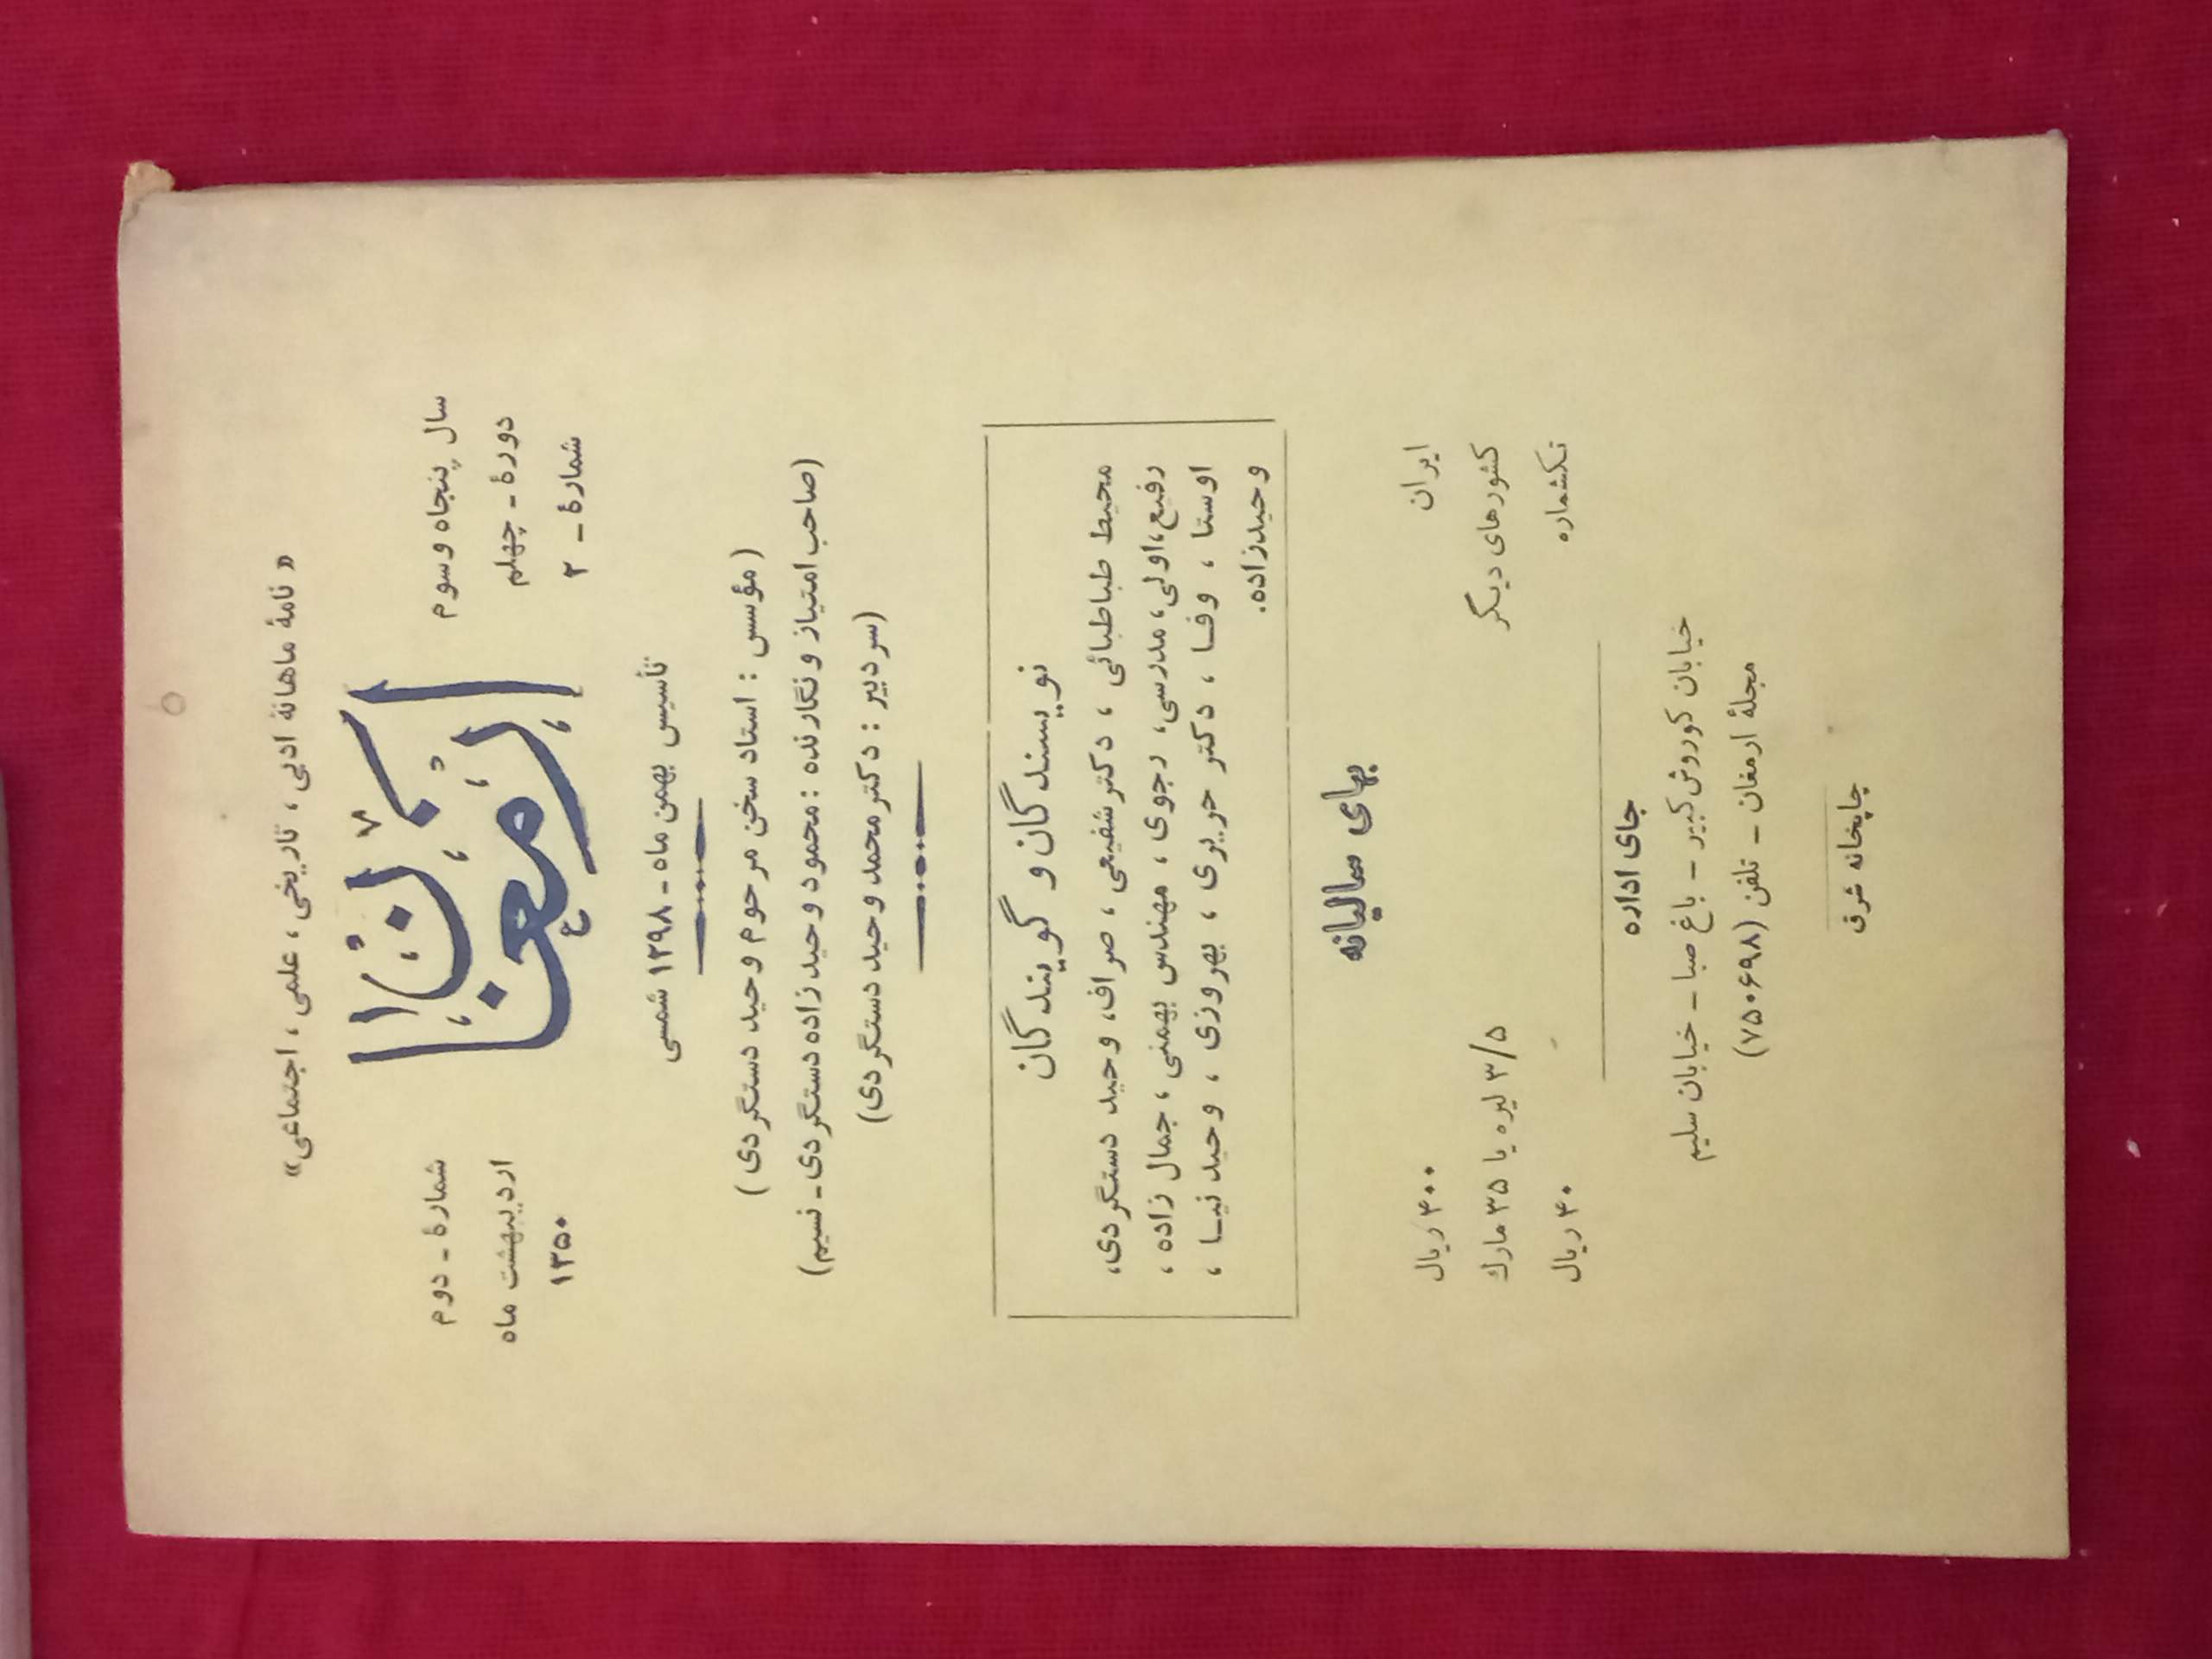 « نامهٔ ماهانهٔ ادبی ، تاریخی ، علمی ، اجتماعی»
سال پنجاه و سوم
دورهٔ - چهلم
شمارهٔ - ۲
ارمغان
شمارهٔ - دوم
اردیبهشت ماه
۱۳۵۰
تأسیس بهمن ماه - ۱۲۹۸ شمسی
( مؤسس : استاد سخن مرحوم وحید دستگردی )
(صاحب امتیاز و نگارنده : محمود وحیدزاده دستگردی- نسیم)
(سردبیر : دکتر محمد وحید دستگردی)
نویسندگان و گویندگان
محیط طباطبائی ، دکتر شفیعی ، صراف، وحید دستگردی،
رفیع، اولی، مدرسی، رجوی ، مهندس بهمنی ، جمال زاده ،
اوستا ، وفا ، دکتر حریری ، بهروزی ، وحید نیا ،
وحیدزاده.
بهای سالیانه
ایران ۴۰۰ ریال
کشورهای دیگر ۳/۵ لیره یا ۳۵ مارك
تکشماره ۴۰ ریال
جای اداره
خیابان کوروش کبیر - باغ صبا - خیابان سلیم
مجلهٔ ارمغان - تلفن (۷۵۰۶۹۸)
چاپخانه شرق